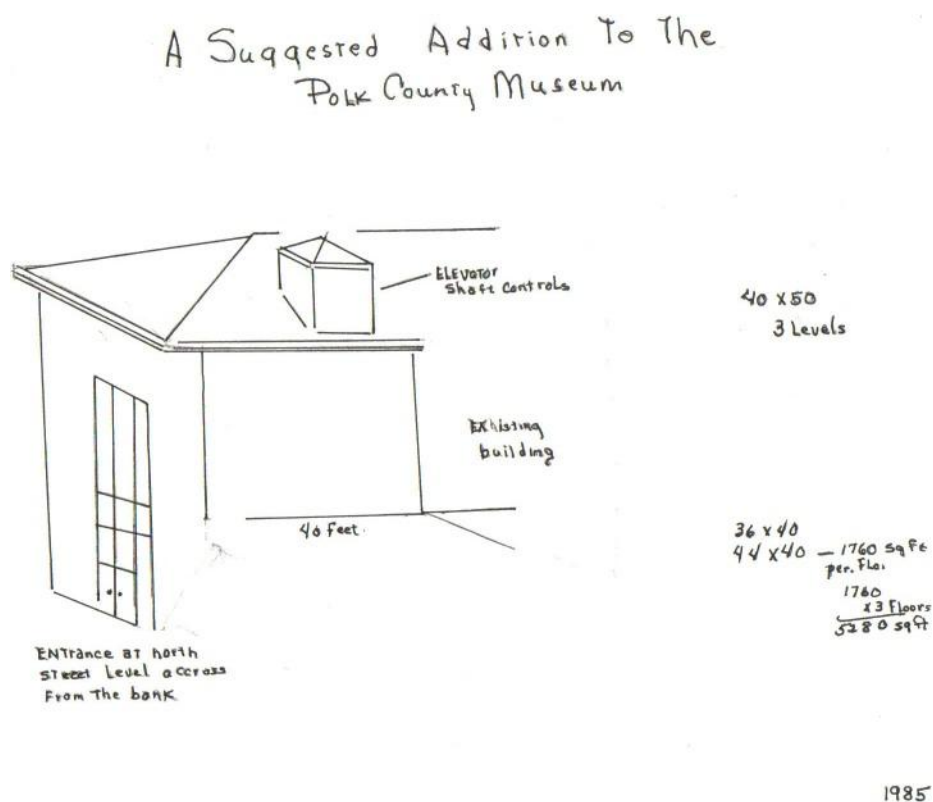 A Suggested Addition To The
Polk County Museum
ELEVATOR
Shaft Controls
40 x 50
3 Levels
EXhisting
building
40 Feet.
36 x 40
44 x 40 — 1760 sq Ft
per. Flo.
1760
x 3 Floors
5280 sq ft
ENTrance at north
STreet Level accross
From The bank
1985